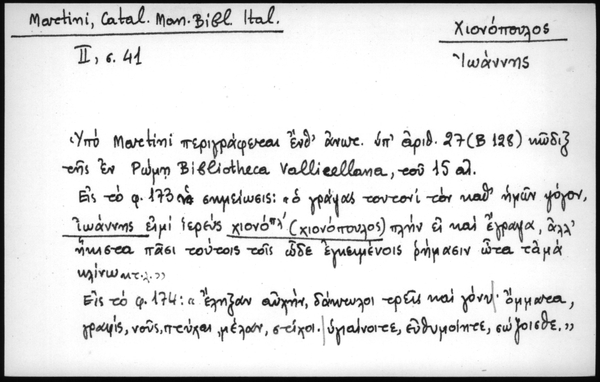 Martini, Catal. Man. Bibl. Ital.
II, σ. 41
Χιονόπουλος
Ἰωάννης
Ὑπό Martini περιγράφεται ἔνθ' ἀνωτ. ὑπ' ἀριθ. 27 (B 128) κῶδιξ
τῆς ἐν Ρώμῃ Bibliotheca Vallicellana, τοῦ 15 αἰ.
Εἰς τό φ. 173 σημείωσις: «ὁ γράψας τουτονί τόν καθ' ἡμῶν ψόγον,
Ἰωάννης εἰμί ἱερεύς χιονόπλ' (χιονόπουλος) πλήν εἰ καί ἔγραψα, ἀλλ'
ἥκιστα πᾶσι τούτοις τοῖς ὧδε ἐγκειμένοις ρήμασιν ὦτα τἀμά
κλίνω κτ.λ.»
Εἰς τό φ. 174: «ἔληξαν αὐχήν, δάκτυλοι τρεῖς καί γόνυ· ὄμματα,
γραφίς, νοῦς, πτύχαι, μέλαν, στίχοι. ὑγιαίνοιτε, εὐθυμοίητε, σώζοισθε.»